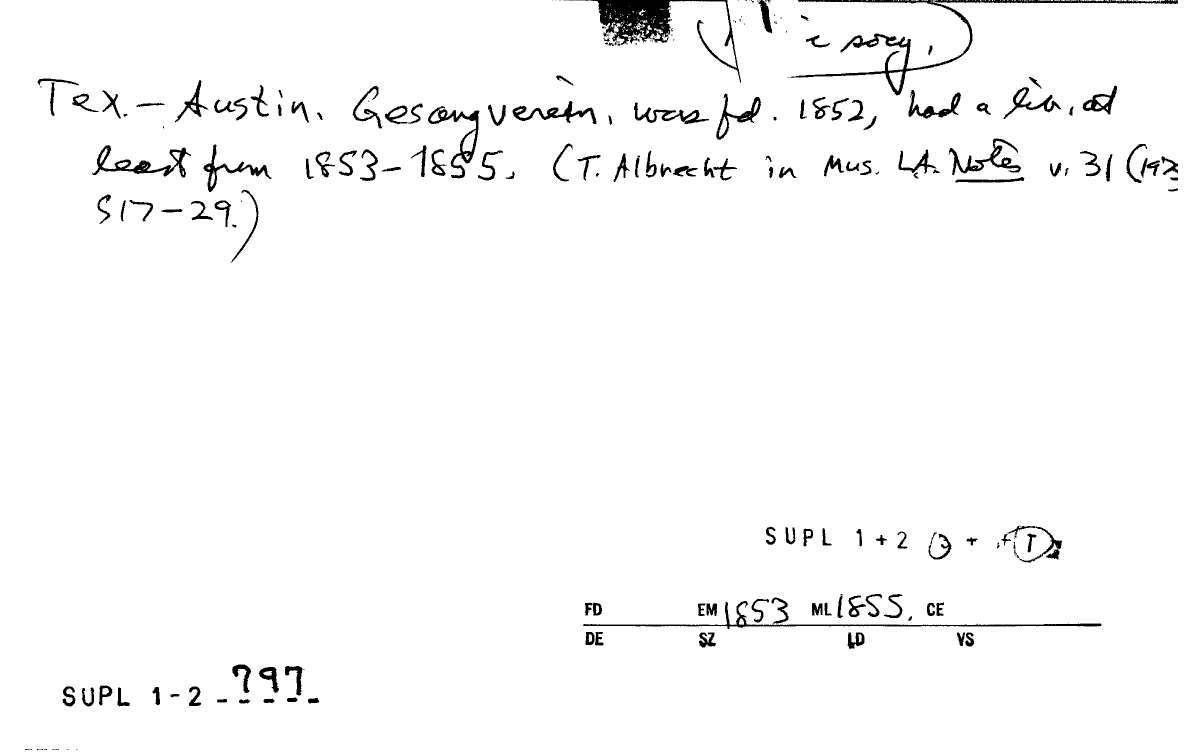 socy.
Tex. – Austin. Gesangverein. was fd. 1852, had a lib. at
least from 1853–1855. (T. Albrecht in Mus. LA. Notes v. 31
517–29.)
SUPL 1+2
FD EM 1853 ML 1855. CE
DE SZ LD VS
SUPL 1-2 797